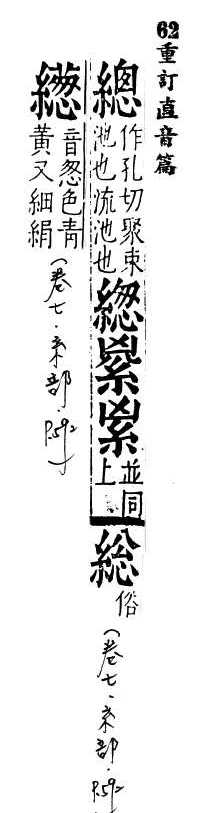 62重訂直音篇
總作孔切聚束池也流池也緫䋯䋯並同上総俗(卷七·糸部·P.592)
繱音怱色青黃又細絹(卷七·糸部·P.592)